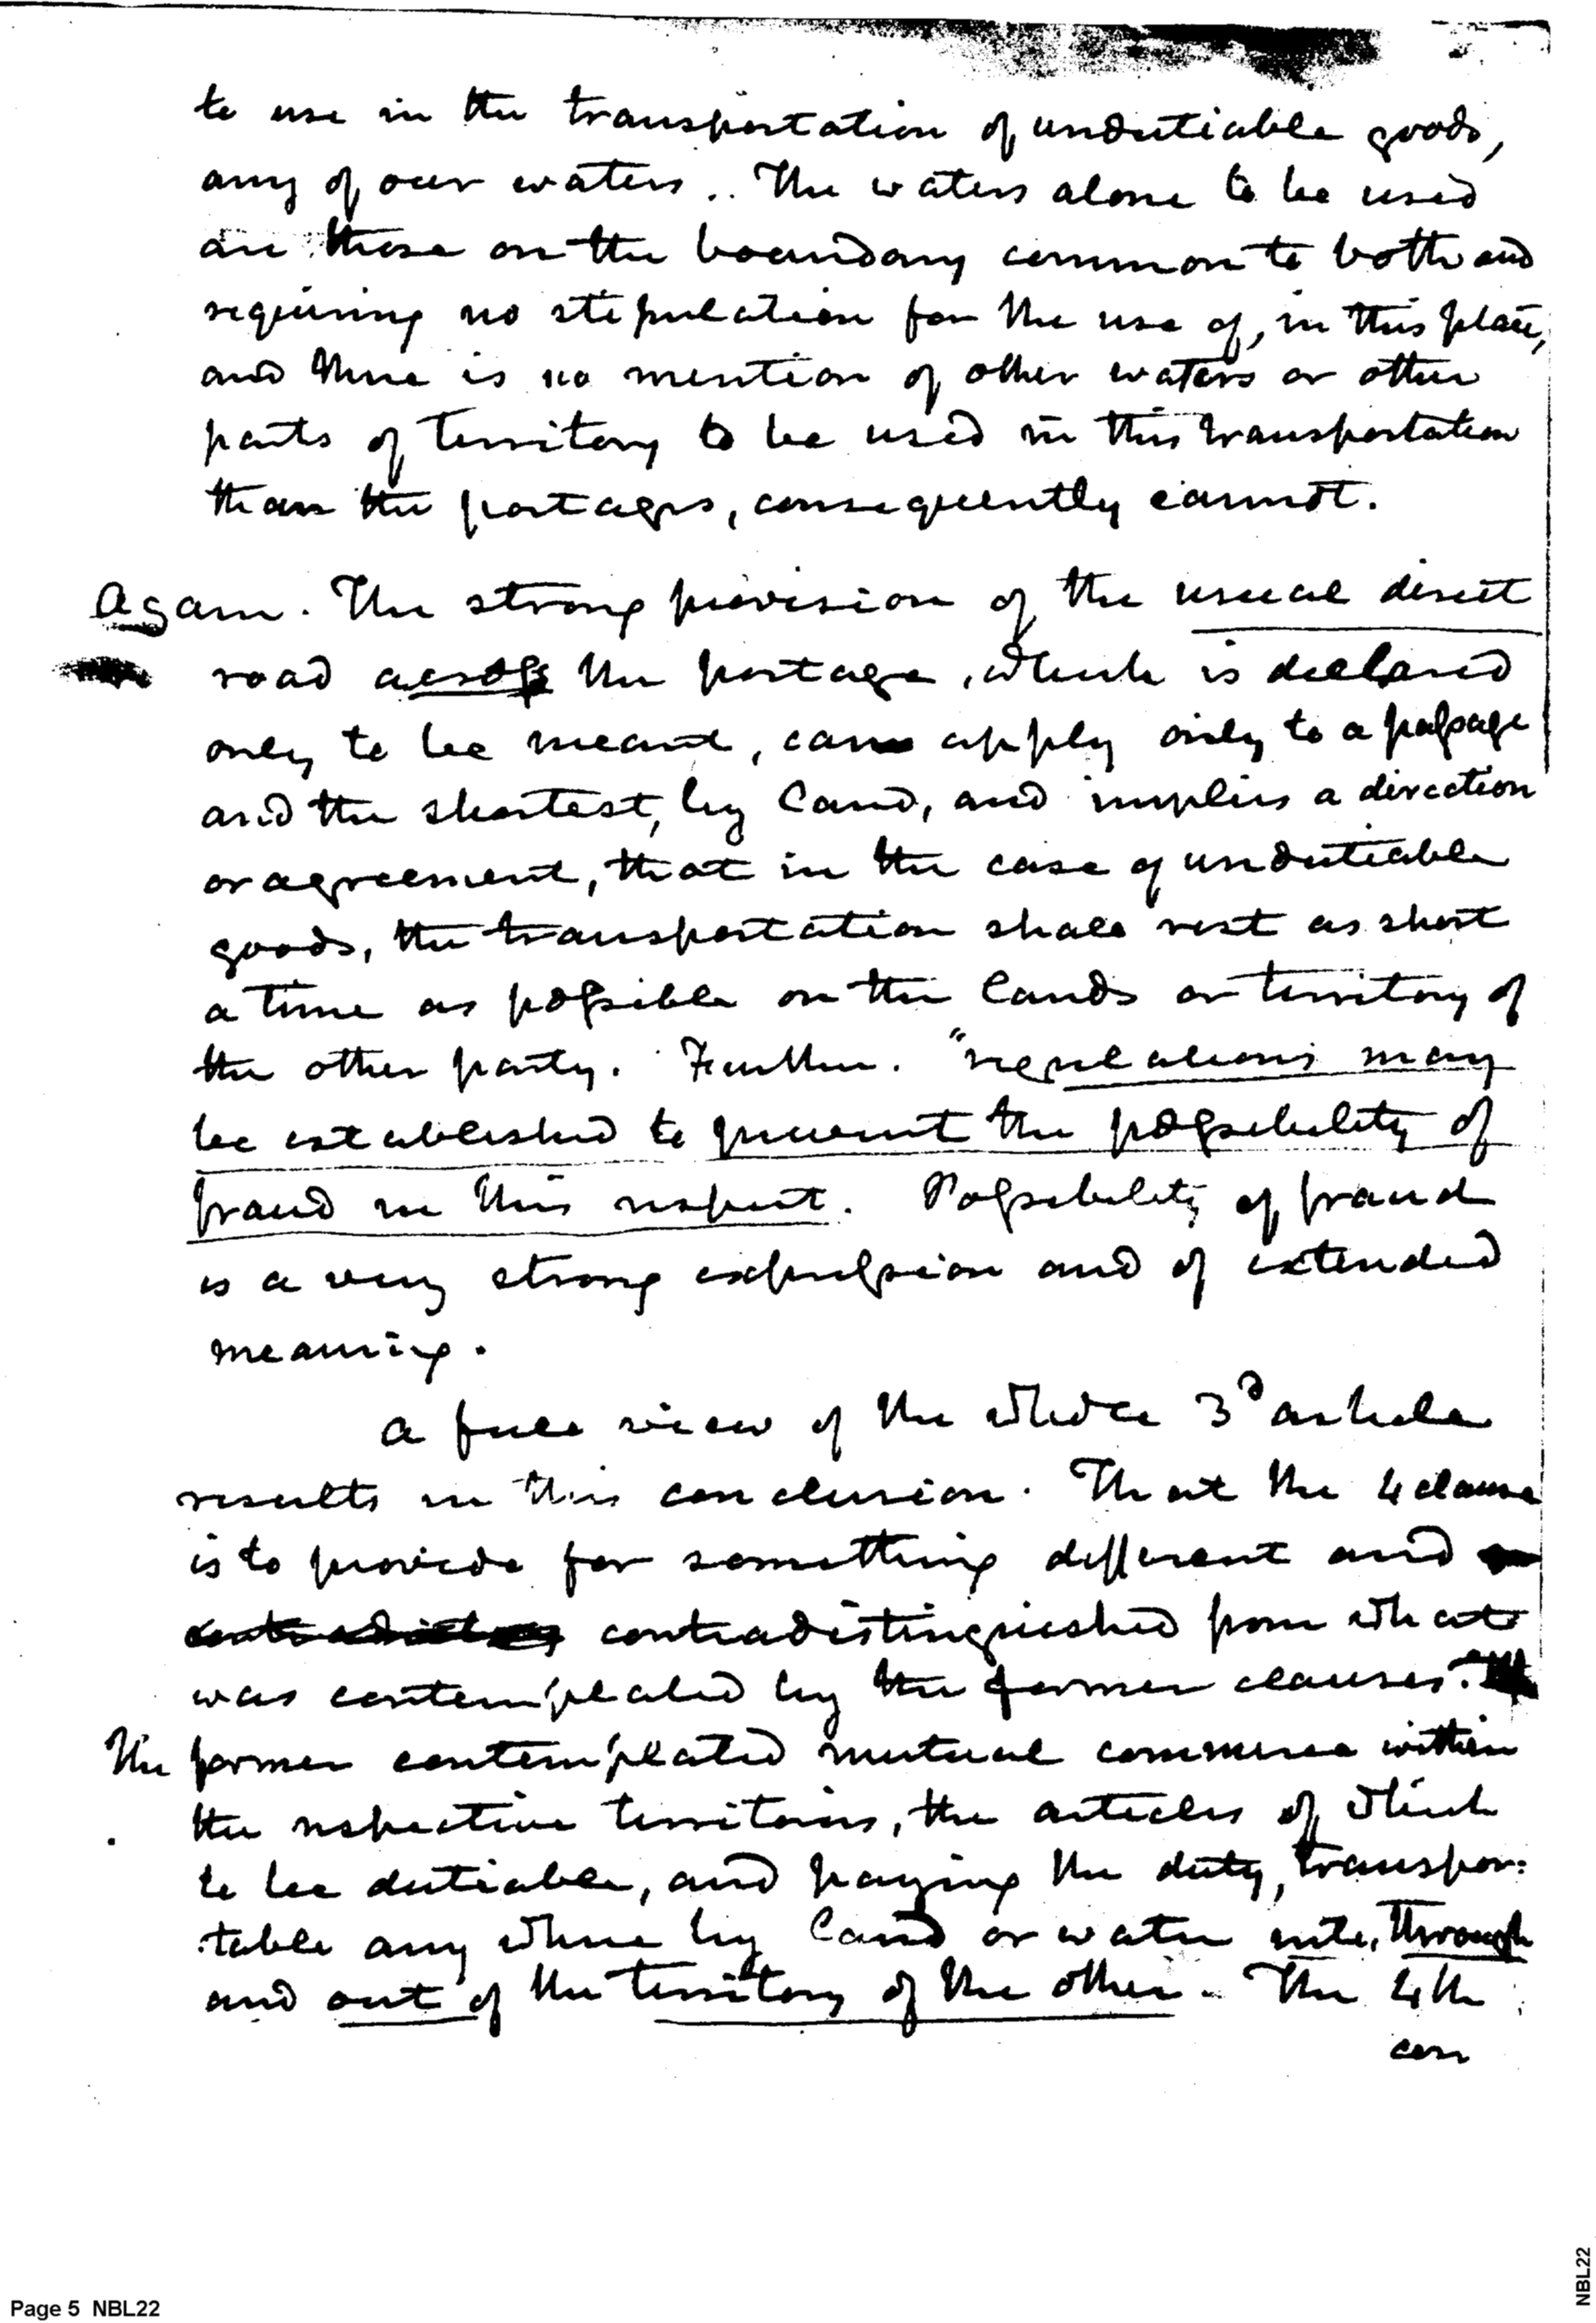 to use in the transportation of undutiable goods,
any of our waters .. The waters alone to be used
are those on the boundary common to both and
requiring no stipulation for the use of, in this place,
and there is no mention of other waters or other
parts of territory to be used in this transportation
than the portages, consequently cannot.
Again. The strong provision of the usual direct
road across the portage, which is declared
only to be meant, can apply only to a passage
and the shortest, by land, and implies a direction
or agreement, that in the case of undutiable
goods, the transportation shall rest as short
a time as possible on the lands or territory of
the other party. Further. "regulations may
be established to prevent the possibility of
fraud in this respect. Possibility of fraud
is a very strong expression and of extended
meaning.
A full view of the whole 3d article
results in this conclusion. That the 4 clause
is to provide for something different and
contradistinguished from what
was contemplated by the former clauses.
The former contemplated mutual commerce within
the respective territories, the articles of which
to be dutiable, and paying the duty, transpor:
:table any where by land or water into, through
and out of the territory of the other. The 4th
con
Page 5 NBL22
NBL22